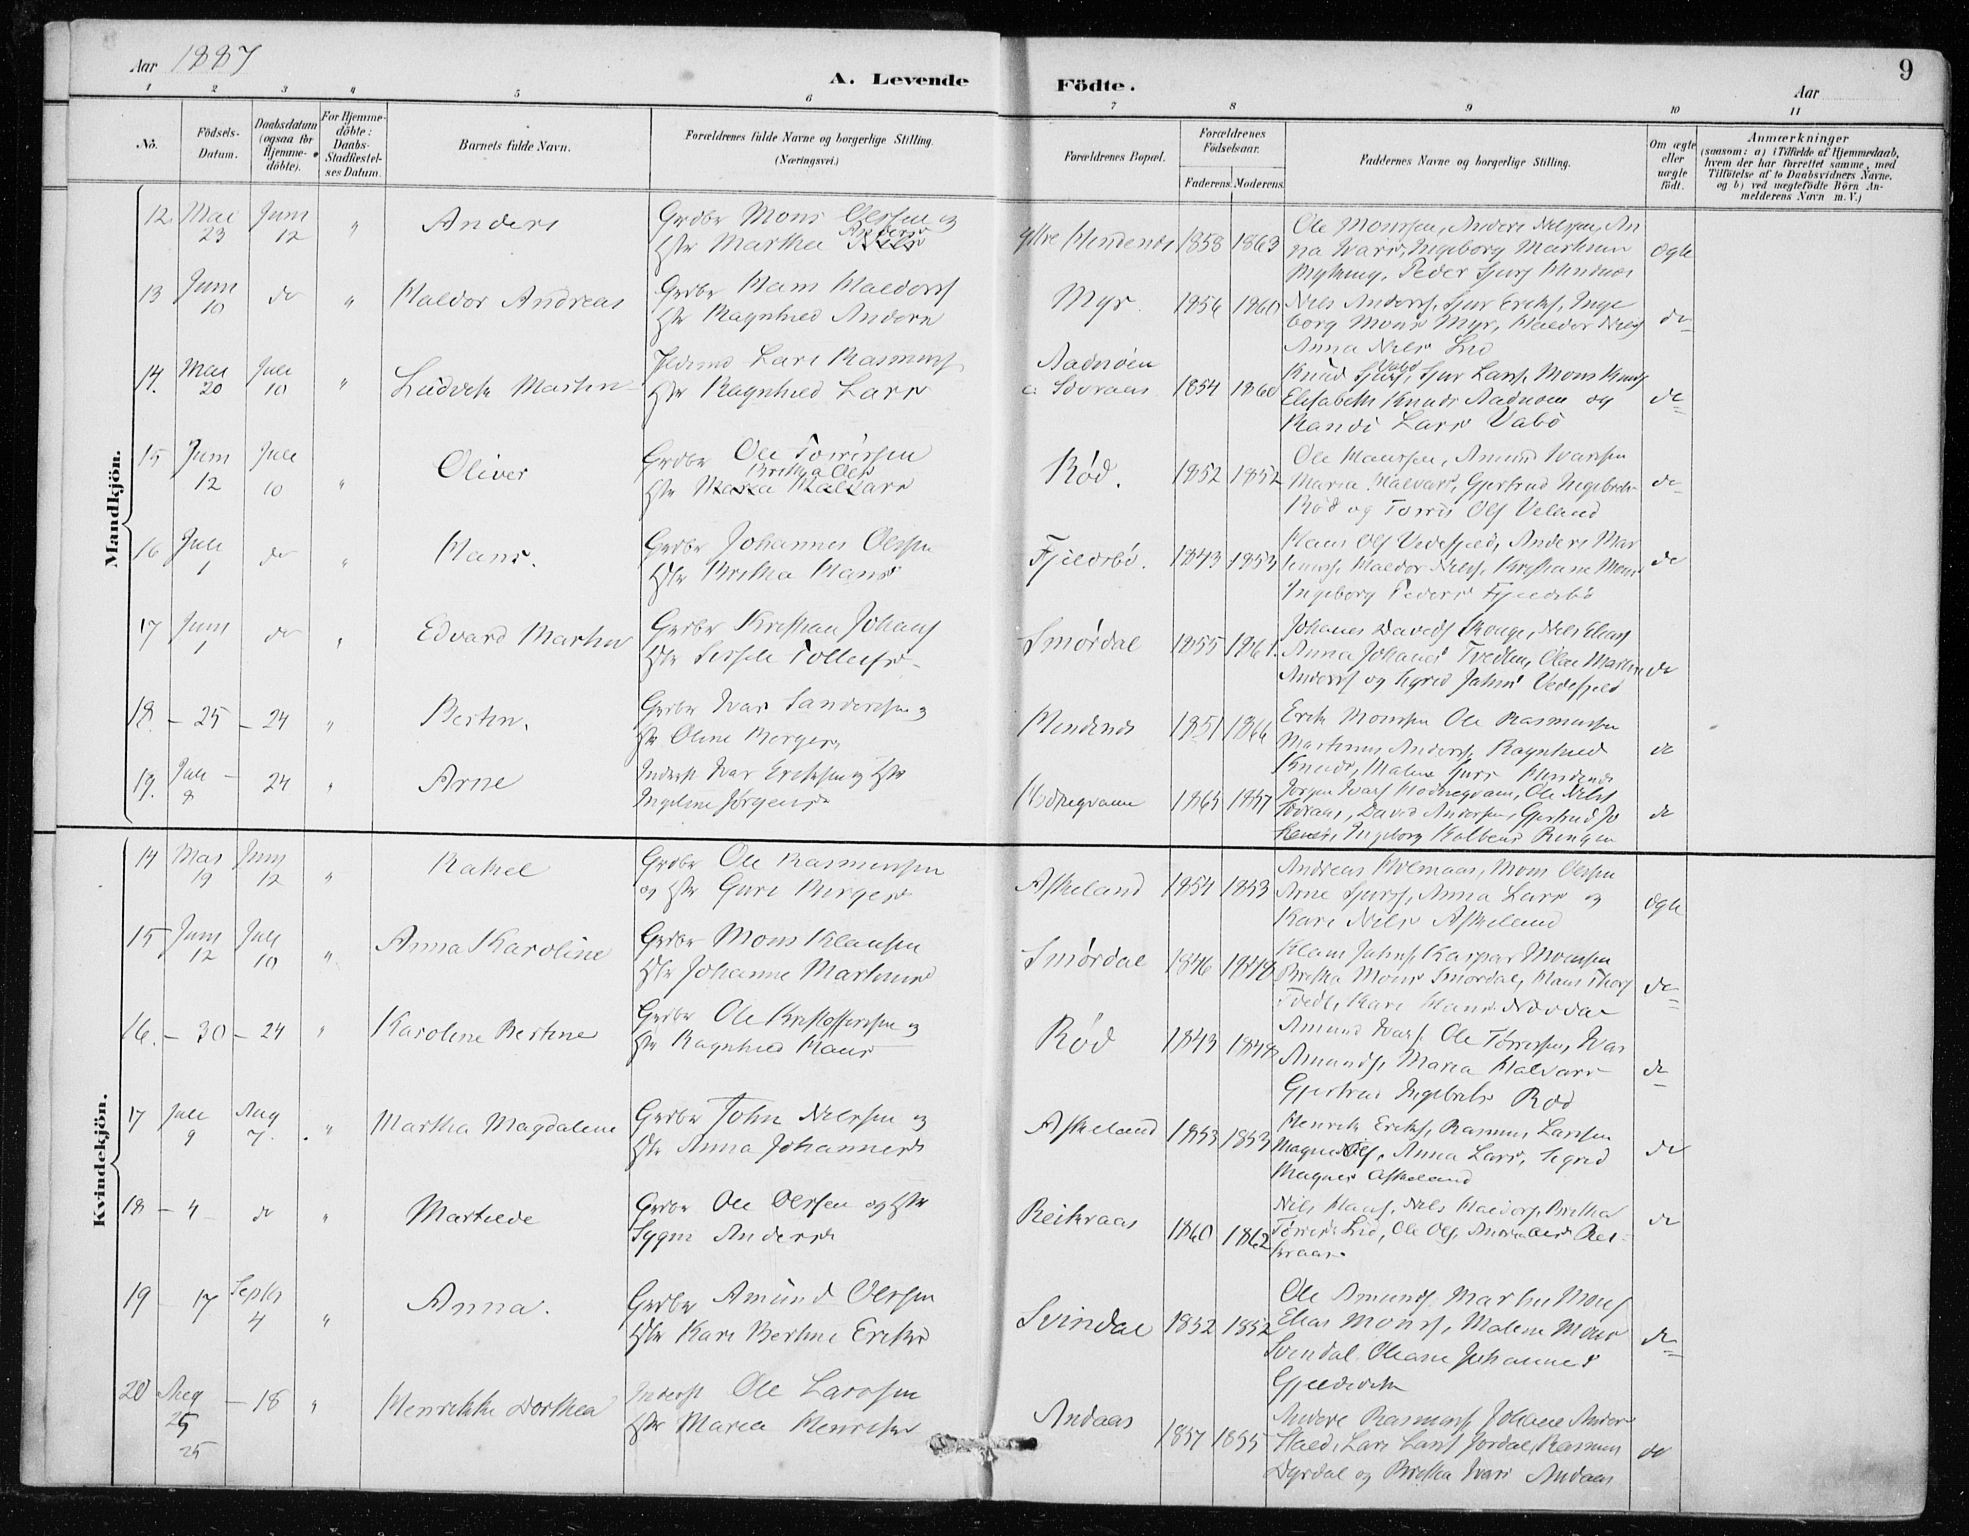 Aar 1887
A. Levende Födte.
Aar
9
1 2 3 4 5 6 7 8 9 10 11
No.
Födsels-Datum.
Daabsdatum (ogsaa for Hjemme-döbte).
For Hjemme-döbte: Daabs-Stadfæstel-ses Datum.
Barnets fulde Navn.
Forældrenes fulde Navne og borgerlige Stilling.
(Næringsvei.)
Forældrenes Bopæl.
Forældrenes Födselsaar.
Faderens. Moderens.
Faddernes Navne og borgerlige Stilling.
Om ægte eller uægte födt.
Anmærkninger
(saasom: a) i Tilfælde af Hjemmedaab,
hvem der har forrettet samme, med
Tilföielse af to Daabsvidners Navne.
og b) ved uægtefödte Börn An-
melderens Navn m. V.)
Mandkjön.
12. Mai 23 Juni 12 " Anders Grdbr Mons Olssen og Hstr Martha Andersd Ytre Hindenes 1858 1863 Ole Monssen, Anders Nilssen, An
na Ivarsd, Ingeborg Martinsd
Myking, Peder Sjurs Hindnes ægte
13 Juni 10 do " Haldor Andreas Grdbr Hans Haldors Hstr Ragnhild Andersd Myr. 1856 1860 Nils Anders, Sjur Eriks, Inge
borg Monsd Myr, Haldor Nils
Anna Nilsd Lid do
14. Mai 20 Juli 10 " Ludvik Martin Lars Rasmuss Hstr Ragnhild Larsd Aadnøen Sævraas 1854 1860 Knud Sjurs, Sjur Lars, Mons Knuds
Elisabeth Knudsd Aadnøen og
Randi Larsd Vabö do
15 Juni 12 Juli 10 " Oliver Grdbr Ole Torrissen Hstr Britha Olsd Rød. 1852 1852 Ole Hanssen, Amund Ivarssen
Maria Halvars, Gjertrud Ingebrets
Röd og Torris Ols Veland do
16 Juli 1 do " Hans. Grdbr Johannes Olssen Hstr Britha Hansd Fjeldsbø. 1843 1853 Hans Ols Vedefjeld, Anders Mar
tinus, Haldor Nils, Kristiane Monsd
Ingeborg Pedersd Fjeldsbö do
17 Juni 1 do " Edvard Martin Grdbr Kristian Johans Hstr Sissele Tollefsd Smørdal 1855 1861. Johanes Davids Skouge, Nils Elias
Anna Johanesd Tvedten, Oline Martin
Anders og Sigrid Jahns Vedefjeld do
18. – 25 – 24 " Bertin. Grdbr Ivar Sanderssen og Hstr Oline Børgesd Hindenes 1851 1866 Erik Monssen Ole Rasmussen
Martinus Anders, Ragnhild
Knudsd, Malene Sjursd Hindenes do
19. Juli 8 – 24 " Arne Inderst Ivar Erikssen og Hstr Ingeline Jørgensd Hodnegvam 1865 1857 Jørgen Ivars Hodnegvam, Ole Nils
Sævraas, David Anderssen, Gjertrud Jo
Ingeborg Kolbeins Ringen do
Kvindekjön.
14 Mai 19 Juni 12 " Rakel Grdbr Ole Rasmussen og Hstr Guri Birgesd Askeland 1854 1853 Andreas Holmaas, Mons Olssen
Arne Sjurs, Anna Larsd og
Kari Nilsd Askeland ægte
15 Juni 12 Juli 10 " Anna Karoline Grdbr Mons Klaussen Hstr Johanne Martinusd Smørdal 1846 1848 Klaus Jahns, Kaspar Monssen
Britha Monsd Smørdal, Hans Thors
Tvedt, Kari Hansd Nordal do
16. – 30 – 24 " Karoline Bertine Grdbr Ole Kristofferssen og Hstr Ragnhild Hansd Rød 1843 1848 Amund Ivars, Ole Torrissen, Ivar
Amunds, Maria Halvarsd
Gjertrud Ingebrets Röd do
17 Juli 9 Aug 7. " Martha Magdalene Grdbr John Nilssen og Hstr Anna Johannesd Askeland 1853 1853 Henrik Eriks, Rasmus Larssen
Magne Ols, Anna Larsd, Sigrid
Magnesd Askeland do
18 – 4 – do " Martilde Grdbr Ole Olssen og Hstr Sygni Andersd Reikraas 1860 1862 Nils Hans, Nils Haldors, Britha
Torrisd Lid, Ole Ols, Andrea Olsd Rei-
kraas. do
19 – 17 Septbr 4 " Anna. Grdbr Amund Olssen Hstr Kari Bertine Eriksd Svindal 1852 1852 Ole Amunds, Martin Mons
Elias Mons, Malene Monsd
Svindal. Oliane Johannesd
Gjeldsvik do
20 Aug 25 25 – 18 " Henrikke Dorthea Inderst Ole Larssen Hstr Maria Henriksd Andaas 1857 1855 Anders Rasmuss, Johane Andersd
Hald, Lars Lars Jordal, Rasmus
Dyrdal og Britha Ivarsd Andaas do